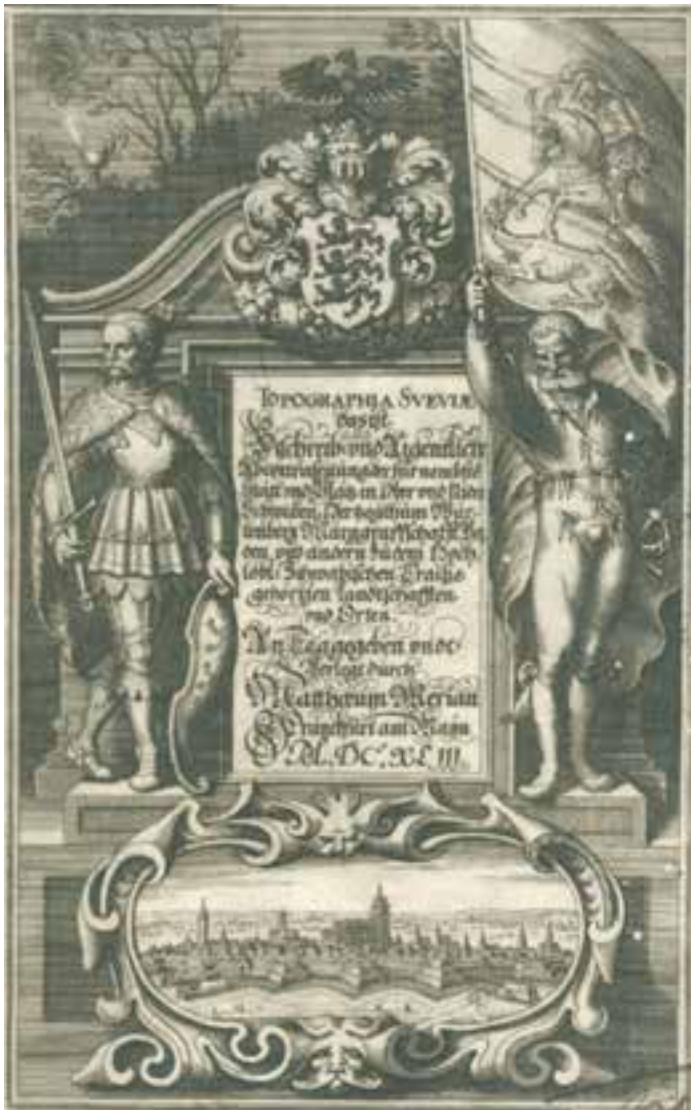 TOPOGRAPHIA SVEVIÆ
das ist
Beschreib: vnd Aigentliche
Abcontrafeitung der fürnembste
Stätt vnd Plätz in Ober vnd Nider
Schwaben, Hertzogthum Würtemberg Marggraffschafft Baden, vnd andern zu dem Hochlöbl: Schwabischen Craiße
gehörigen Landtschafften
vnd Orten.
An Tag gegeben vndt
Verlegt durch
Matthæum Merian
Franckfurt am Mayn
M.DC.XLIII.